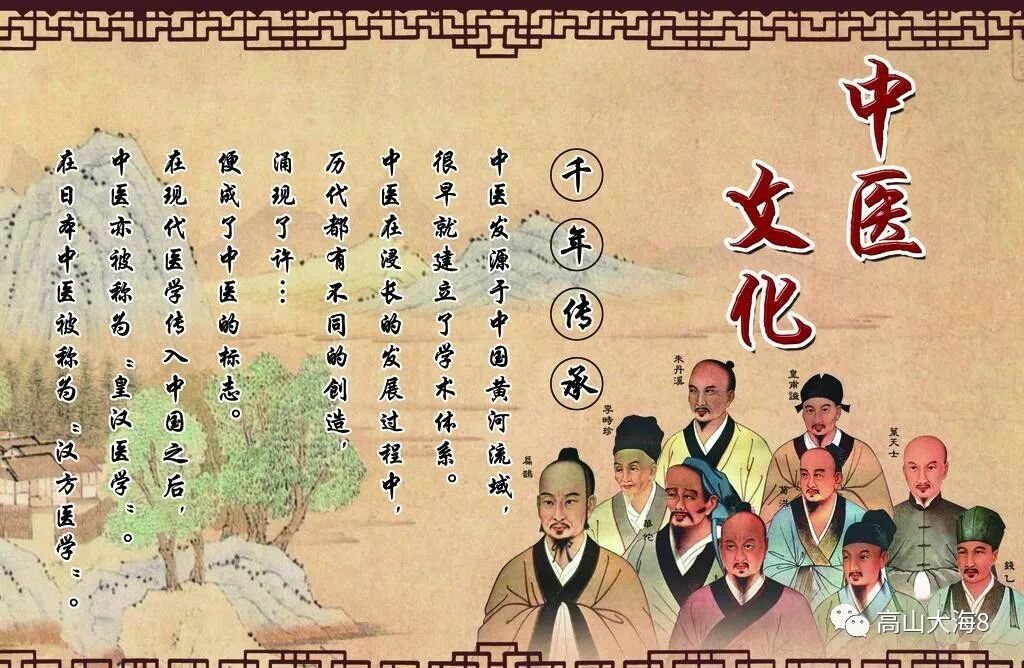 中医
文化
千年传承
中医发源于中国黄河流域，
很早就建立了学术体系。
中医在漫长的发展过程中，
历代都有不同的创造，
涌现了许…
便成了中医的标志。
在现代医学传入中国之后，
中医亦被称为“皇汉医学”。
在日本中医被称为“汉方医学”。
朱丹溪
皇甫謐
李時珍
葉天士
扁鵲
葛洪
華佗
錢乙
高山大海8